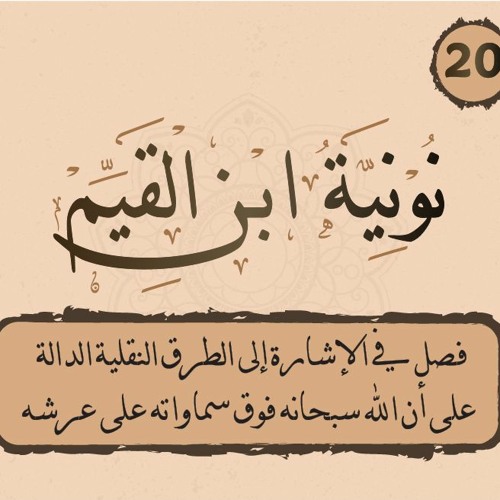 20
نونية ابن القيم
فصل في الإشارة إلى الطرق النقلية الدالة
على أن الله سبحانه فوق سماواته على عرشه